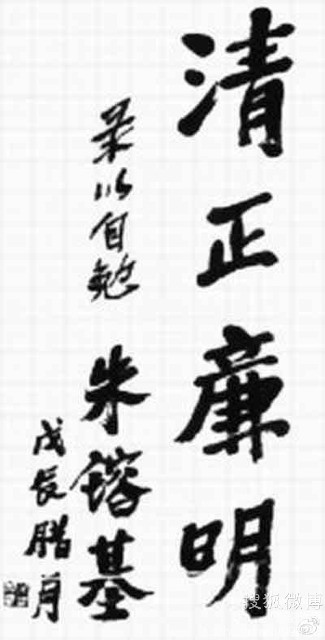 清正廉明
录以自勉
朱镕基
戊辰腊月
搜狐微博